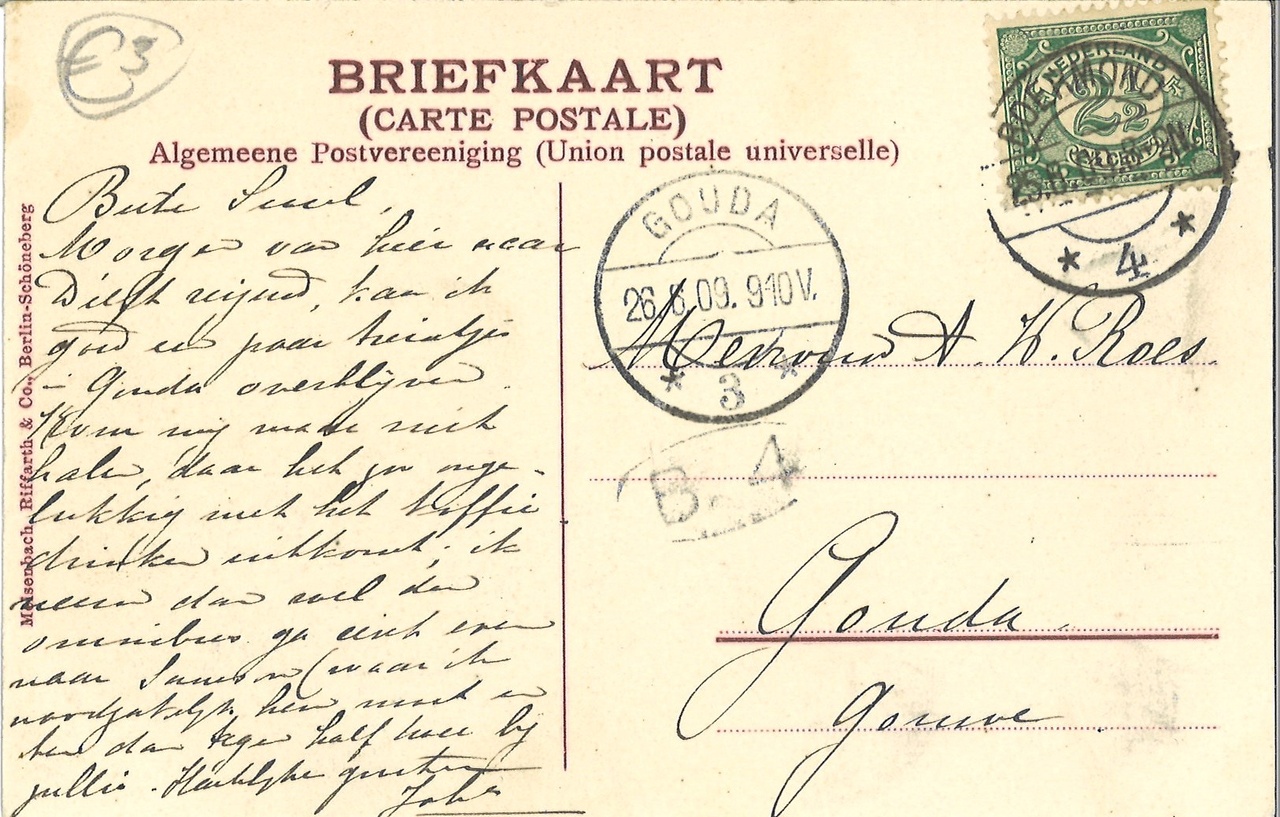 €3
BRIEFKAART
(CARTE POSTALE)
Algemeene Postvereeniging (Union postale universelle)
NEDERLAND
2½
ROERMOND
4
GOUDA
26.8.09. 910V.
3
B. 4
Meisenbach, Riffarth & Co., Berlin-Schöneberg
Beste
Morgen van hier naar
Delft reizend, kan ik
goed een paar treintjes
Gouda overblijven.
Kom mij maar niet
halen, daar het zo onge-
lukkig met het koffie
drinken uitkomt; ik
neem dan wel den
omnibus ga eerst even
naar (waar ik
noodzakelijk heen moet en
ben dan tegen half twee bij
jullie. Hartelijke groeten
Mevrouw A. K. Roes
Gouda
Gouwe